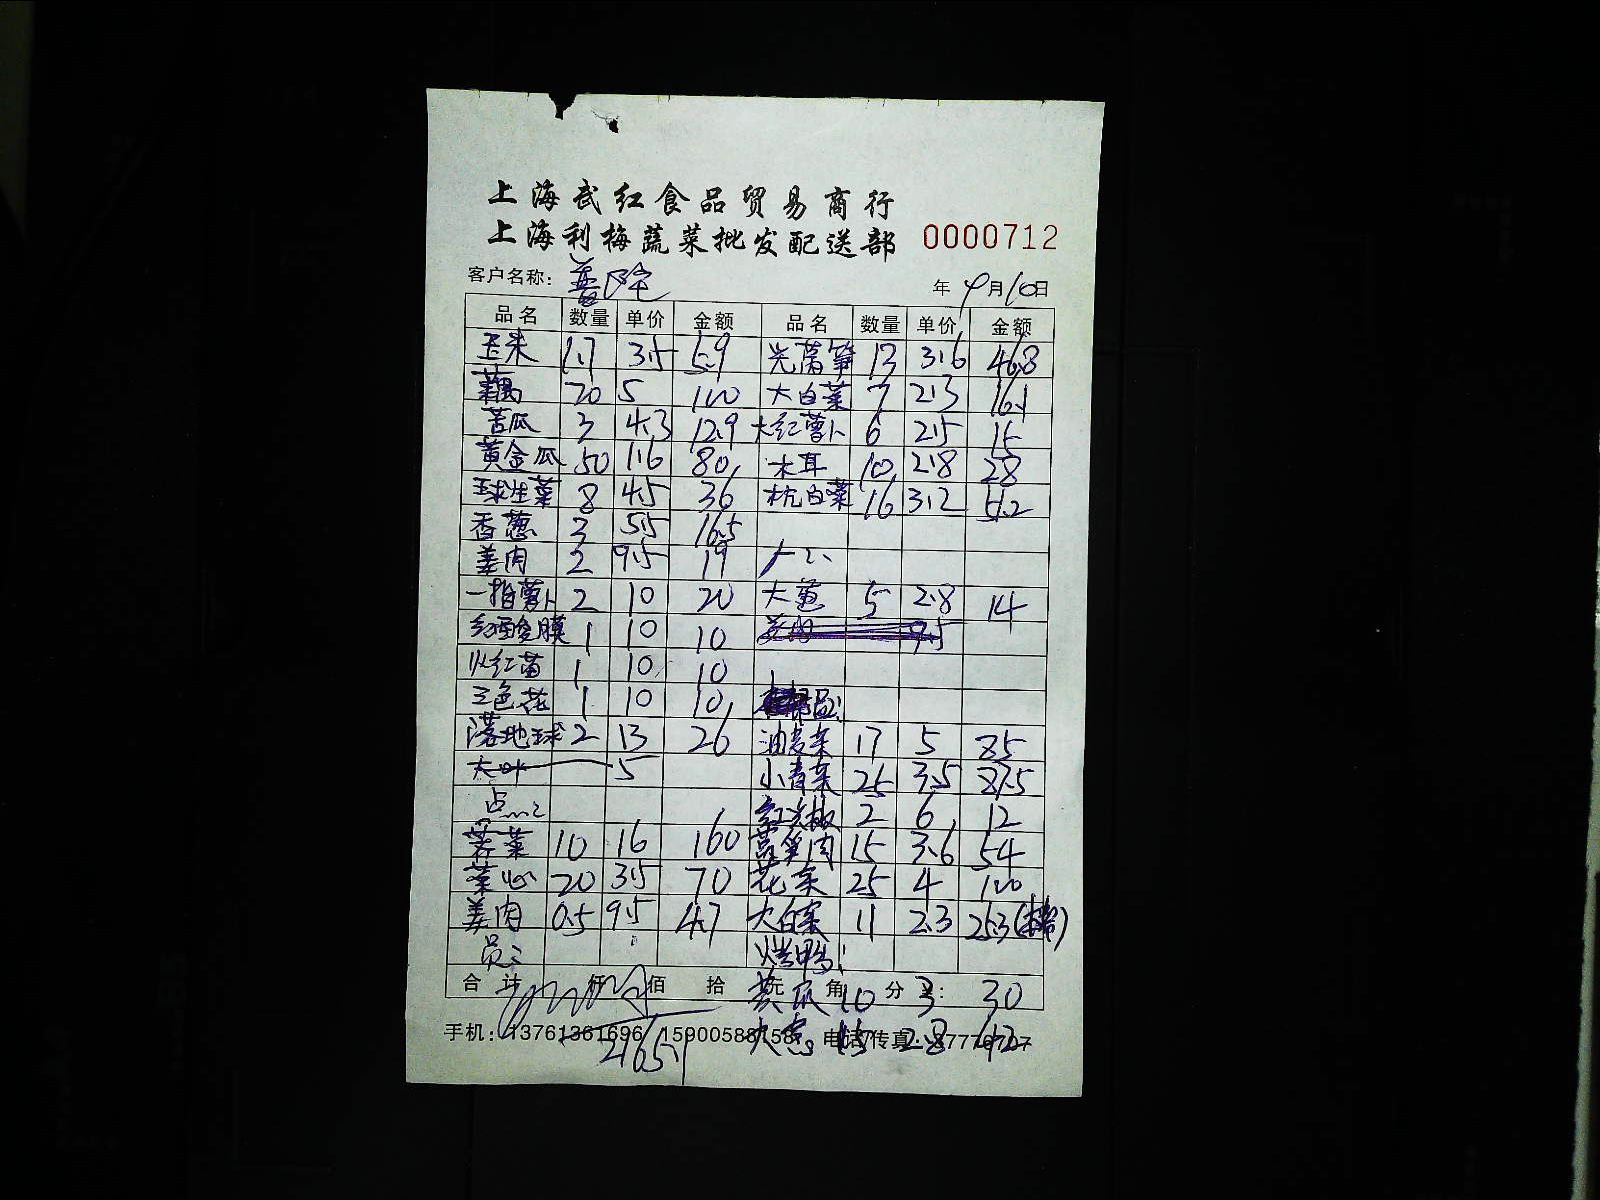 上海武红食品贸易商行
上海利梅蔬菜批发配送部 0000712
客户名称: 年 9月10日
品名 数量 单价 金额 品名 数量 单价 金额
玉米 1.7 3.5 5.9 光莴笋 13 3.6 46.8
藕 20 5 100 大白菜 7 2.3 16.1
苦瓜 3 4.3 12.9 大红萝卜 6 2.5 15
黄金瓜 50 1.6 80 木耳 10 2.8 28
球生菜 8 4.5 36 杭白菜 16 3.2 51.2
香葱 3 5.5 16.5
姜肉 2 9.5 19
一指萝卜 2 10 20 大葱 5 2.8 14
1 10 10 姜肉 9.5
红苗 1 10 10
三色花 1 10 10
落地球 2 13 26 油麦菜 17 5 85
大叶 5 小青菜 25 3.5 87.5
点心: 红尖椒 2 6 12
荠菜 10 16 160 莴笋肉 15 3.6 54
菜心 20 3.5 70 花菜 25 4 100
姜肉 0.5 9.5 4.7 大白菜 11 2.3 25.3
员: 烤鸭:
合计 仟 佰 拾 元 角 分 ¥: 黄瓜 10 3 30
手机: 13761361696 15900588158 电话/传真: 57770707 大葱 15 2.8 42
2165.1